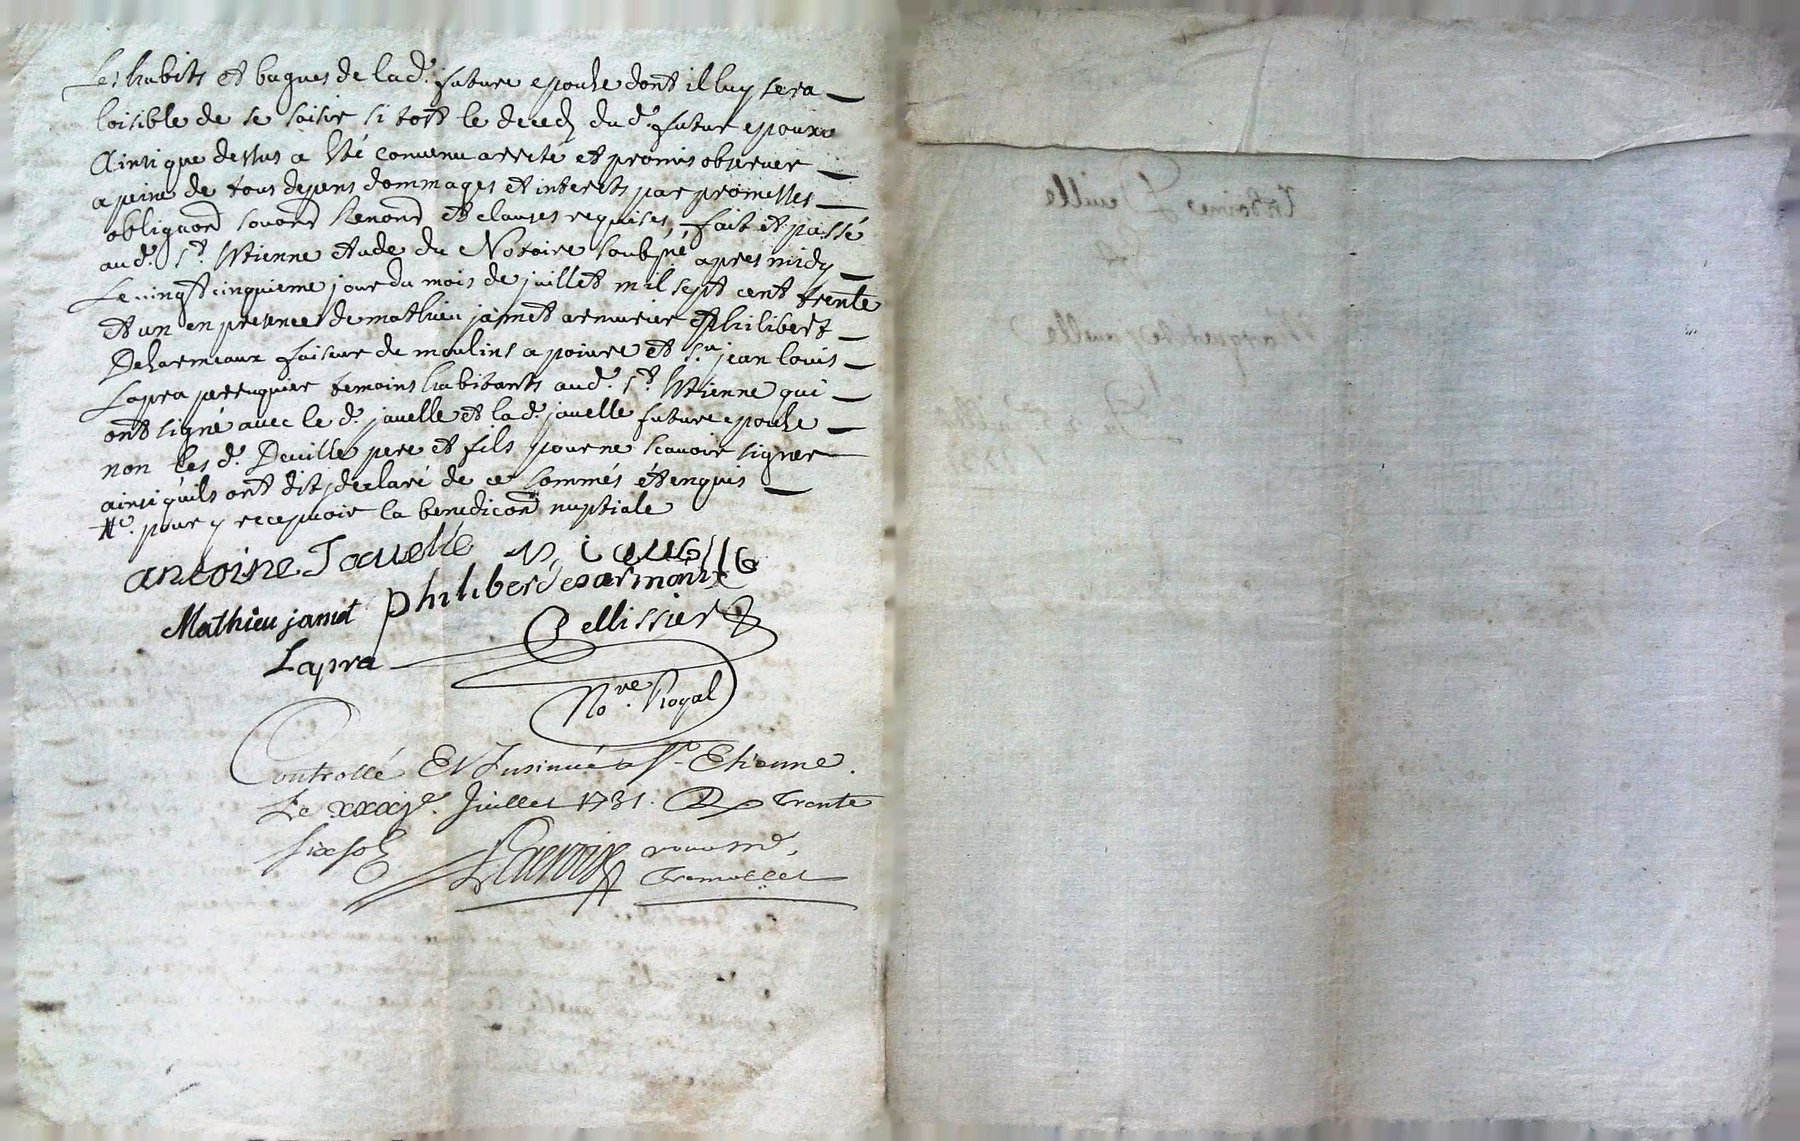 Les habits et bagues de lad. future epouse dont il luy sera
loisible de se saisir si tost le deced dud. futur epoux
Ainsi que dessus a été convenu arreté et promis observer
a peine de tous depens dommages et interets par promesses
obligaōn soumōn Renonōn et clauses requises, fait et passé
aud. St. Etienne etude du Notaire soubsné apres midy
Le vingt cinquieme jour du mois de juillet mil sept cent trente
et un en presence de mathieu jamet armurier et philibert
Desarmeaux faiseur de moulins a poivre et Sr. jean louis
Lapra perruquier temoins habitants aud. St. Etienne qui
ont signé avec le d. javelle et lad. javelle future epouse
non les d. Deville pere et fils pour ne scavoir signer
ainsi quils ont dit, declaré de ce sommés et enquis
pour y recepvoir la benediction nuptiale
antoine Javelle
Mathieu jamet philiber desarmaux
Lapra Pellissier
Nore. Royal
Controllé Et Insinué a St. Etienne.
Le xxxje. Juillet 1731. R Trente
six sols
Antoine Deville
Margueritte Javelle